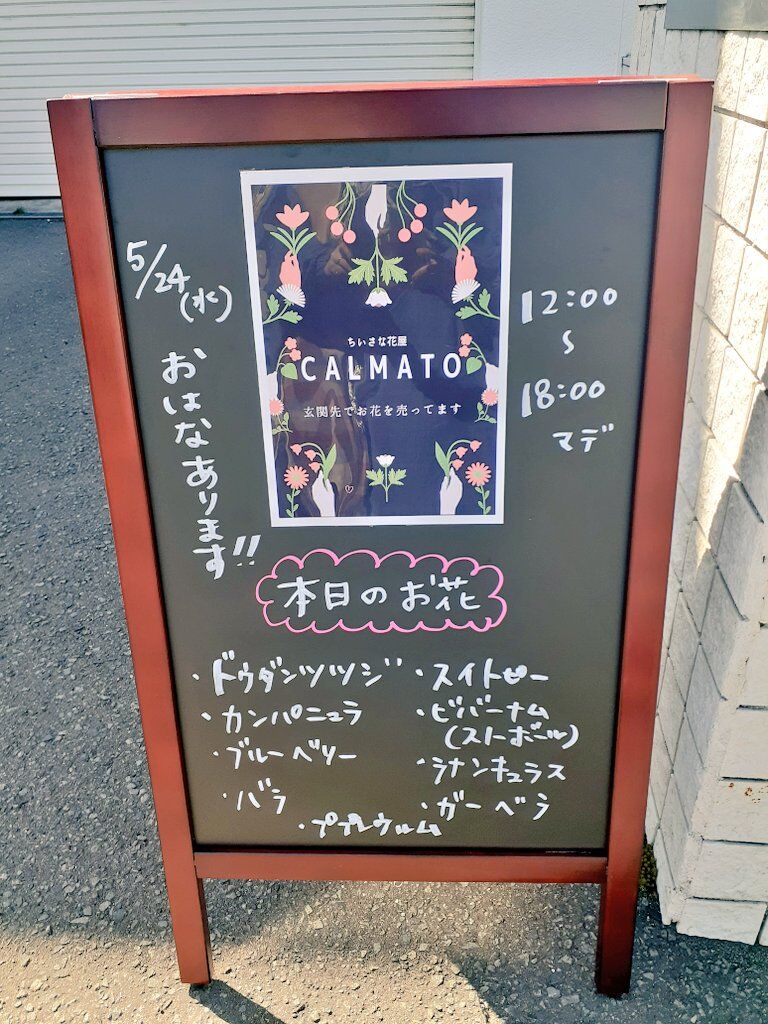 5/24
(水)
おはなあります!!
ちいさな花屋
CALMATO
玄関先でお花を売ってます
12:00
〜
18:00
マデ
本日のお花
・ドウダンツツジ
・カンパニュラ
・ブルーベリー
・バラ
・スイトピー
・ビバーナム
(スノーボール)
・ラナンキュラス
・ガーベラ
・ブプレウルム